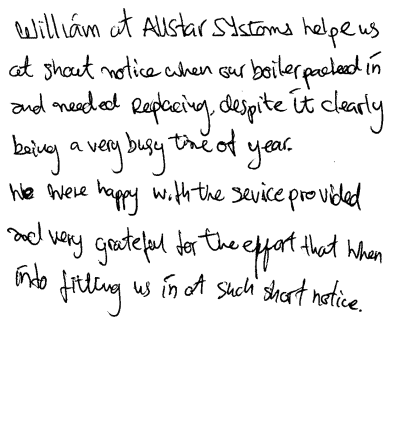 William at Allstar Systoms helpe us
at shout notice when our boiler packed in
and needed Replacing, despite it clearly
being a very busy time of year.
We were happy with the sevice provided
and very grateful for the effort that when
into fitting us in at such short notice.